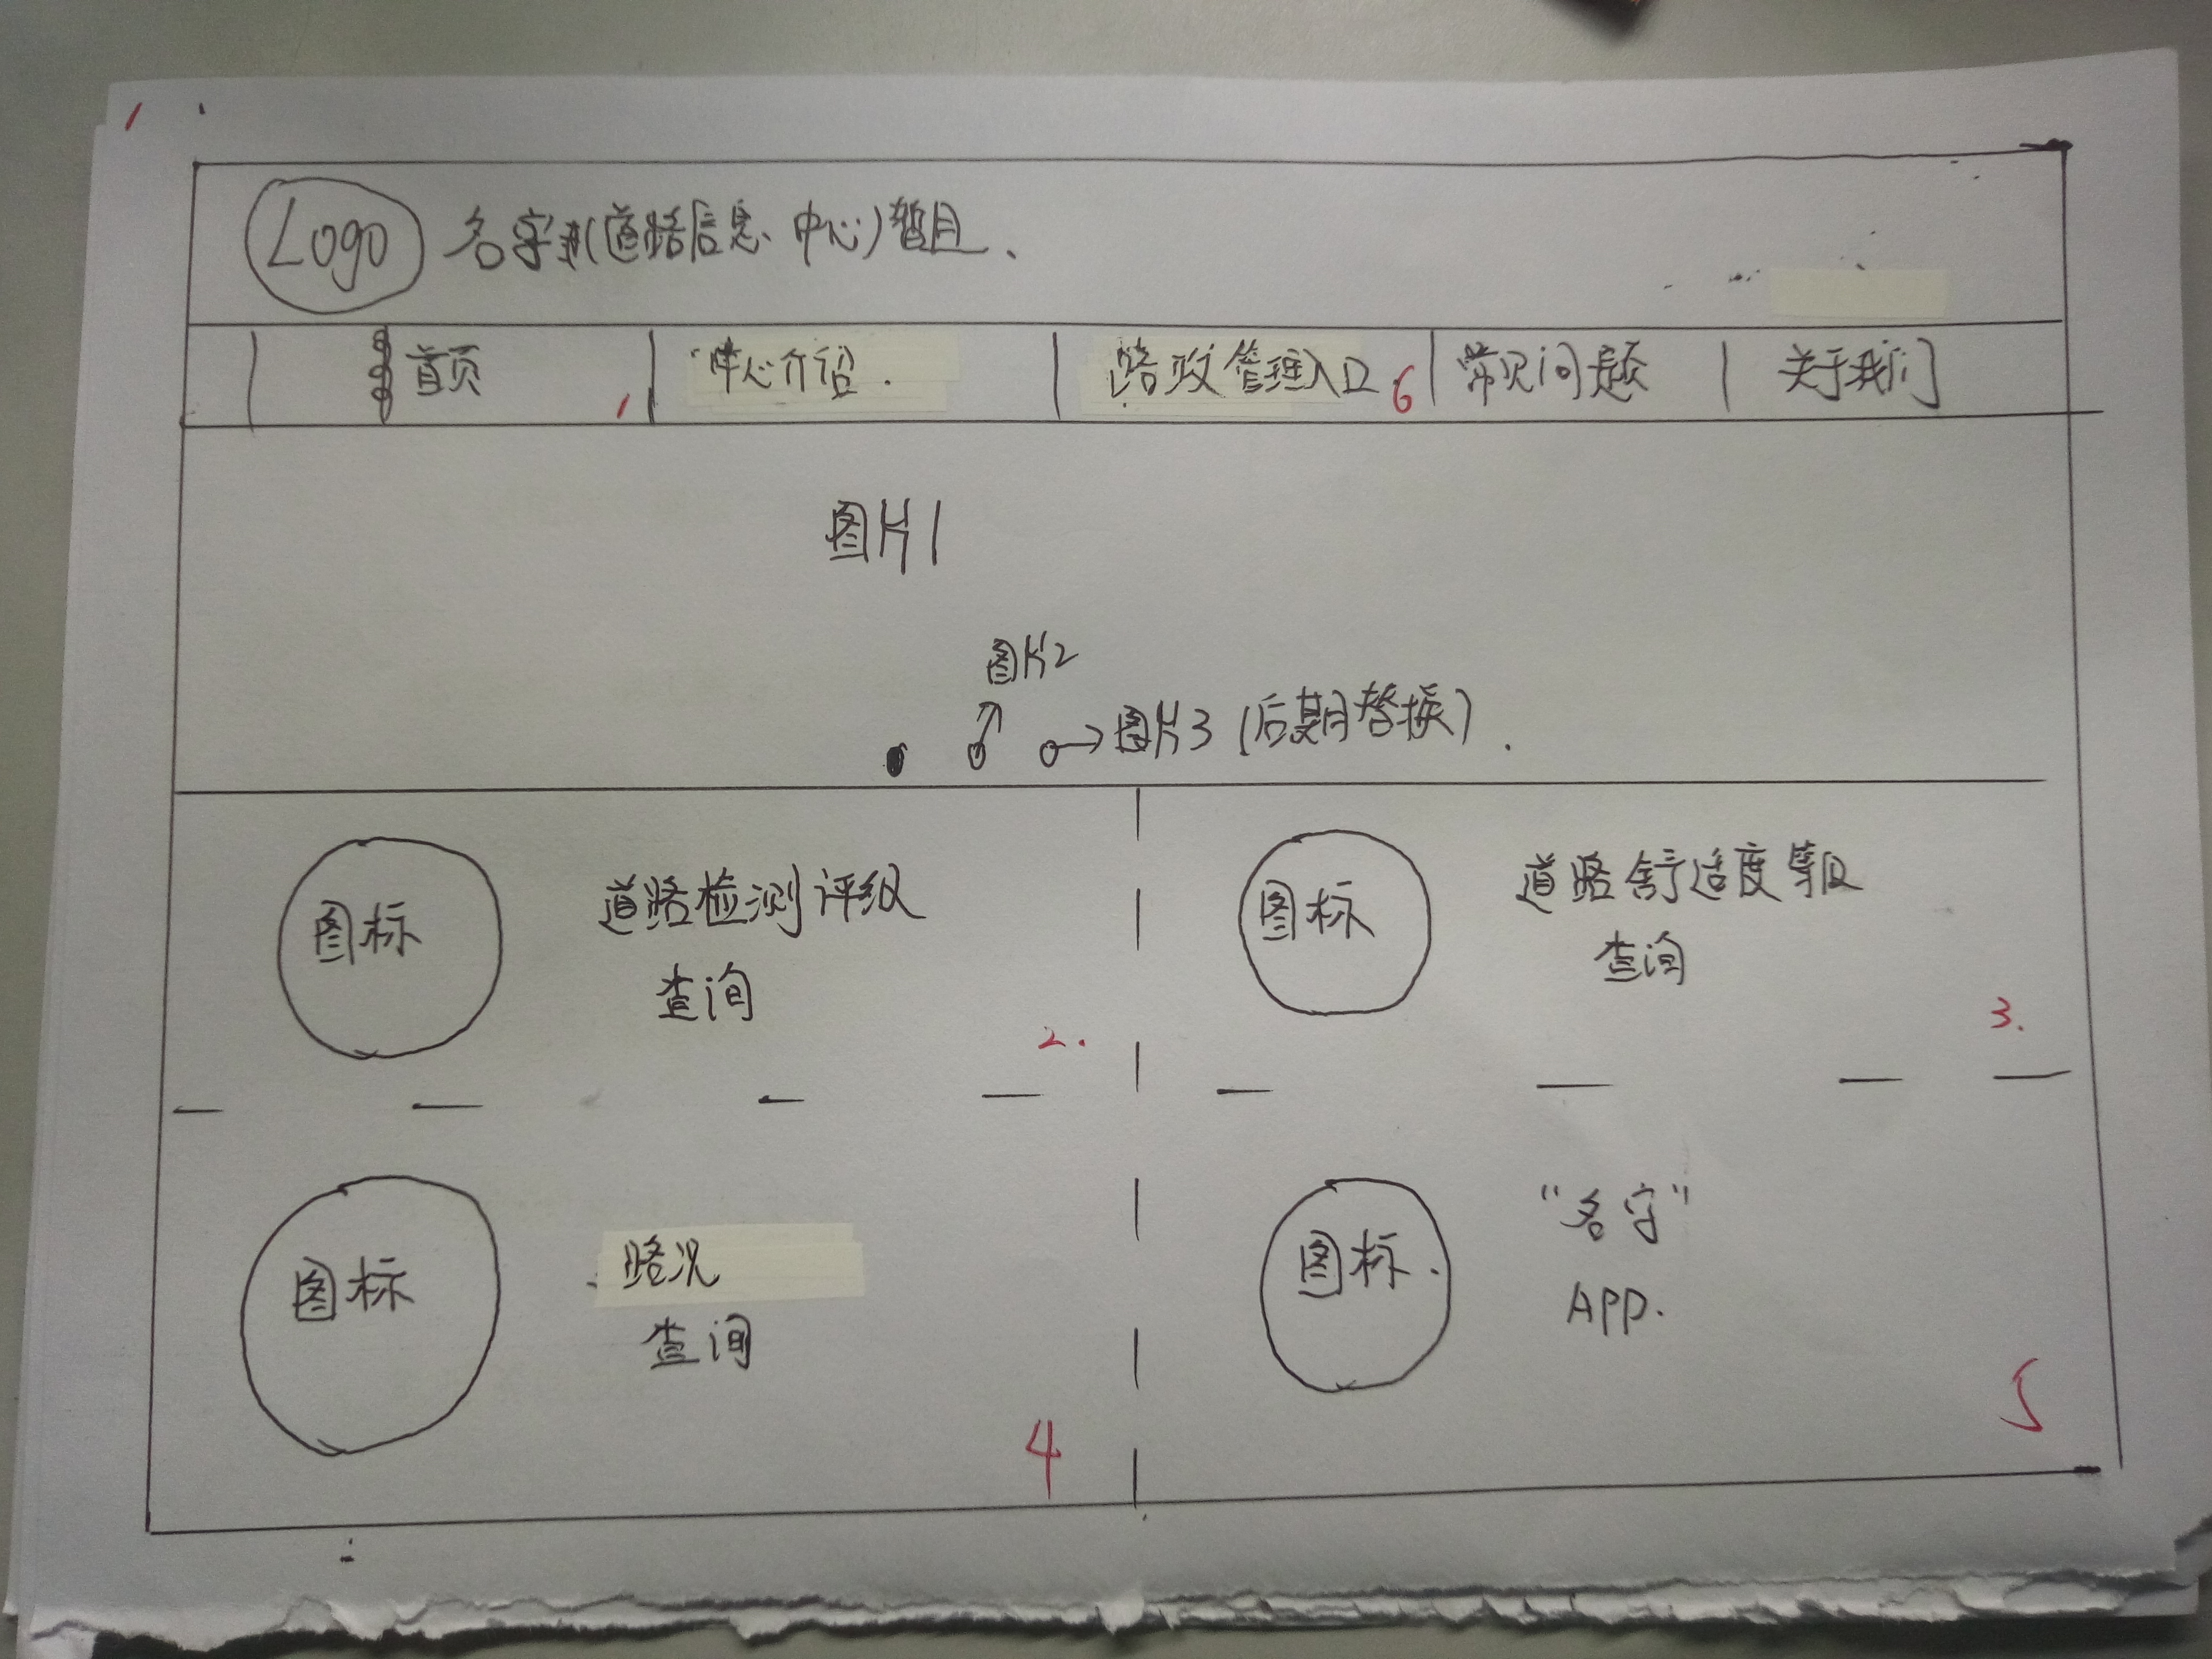 1
Logo 名字(道路信息中心)暂且、
首页 1 中心介绍. 路政管理入口 6 常见问题 关于我们
图片1
图片2
图片3 (后期替换).
图标 道路检测评级
查询
2.
图标 道路舒适度等级
查询
3.
图标 路况
查询
4
图标. "名字"
APP.
5